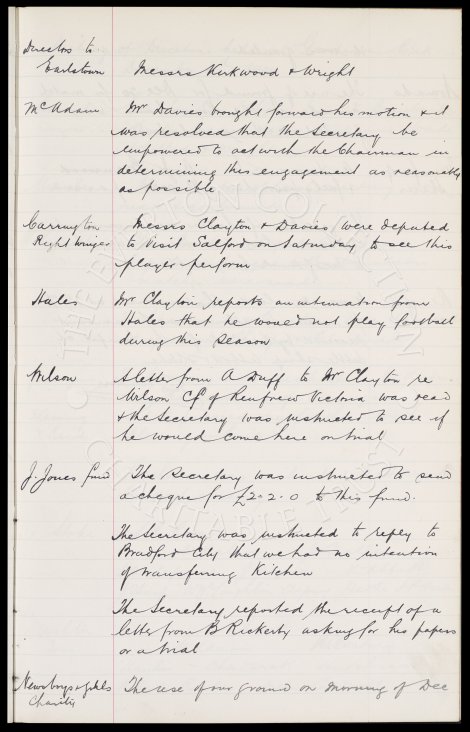 Directors to
Earlstown Messrs Kirkwood & Wright
McAdam Mr Davies brought forward his motion & it
was resolved that the Secretary be
empowered to act with the Chairman in
determining this engagement as reasonably
as possible
Carrington Messrs Clayton & Davies were deputed
Right Winger to visit Salford on Saturday to see this
player perform
Hales Mr Clayton reports an intimation from
Hales that he would not play football
during this season
Wilson A letter from A Duff to Mr Clayton re
Wilson CF of Renfrew Victoria was read
& the Secretary was instructed to see if
he would come here on trial
J. Jones fund The Secretary was instructed to send
a cheque for £2-2-0 to this fund.
The Secretary was instructed to reply to
Bradford City that we had no intention
of transferring Kitchen
The Secretary reported the receipt of a
letter from B Rickerby asking for his papers
or a trial
Newsboys & girls The use of our ground on morning of Dec
Charity
THE EVERTON COLLECTION
CHARITABLE TRUST